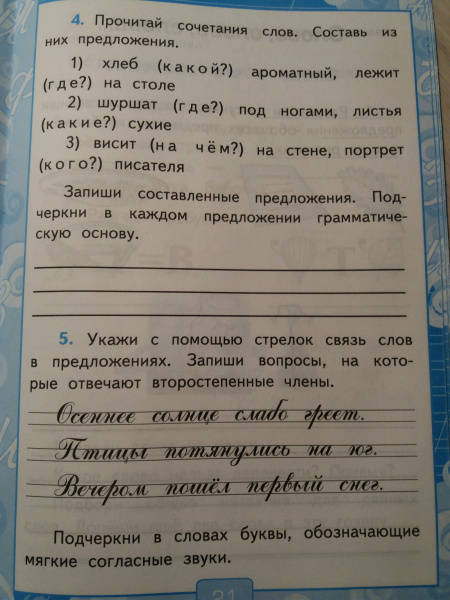 4. Прочитай сочетания слов. Составь из
них предложения.
1) хлеб (какой?) ароматный, лежит
(где?) на столе
2) шуршат (где?) под ногами, листья
(какие?) сухие
3) висит (на чём?) на стене, портрет
(кого?) писателя
Запиши составленные предложения. Под-
черкни в каждом предложении грамматиче-
скую основу.
5. Укажи с помощью стрелок связь слов
в предложениях. Запиши вопросы, на кото-
рые отвечают второстепенные члены.
Осеннее солнце слабо греет.
Птицы потянулись на юг.
Вечером пошёл первый снег.
Подчеркни в словах буквы, обозначающие
мягкие согласные звуки.
31